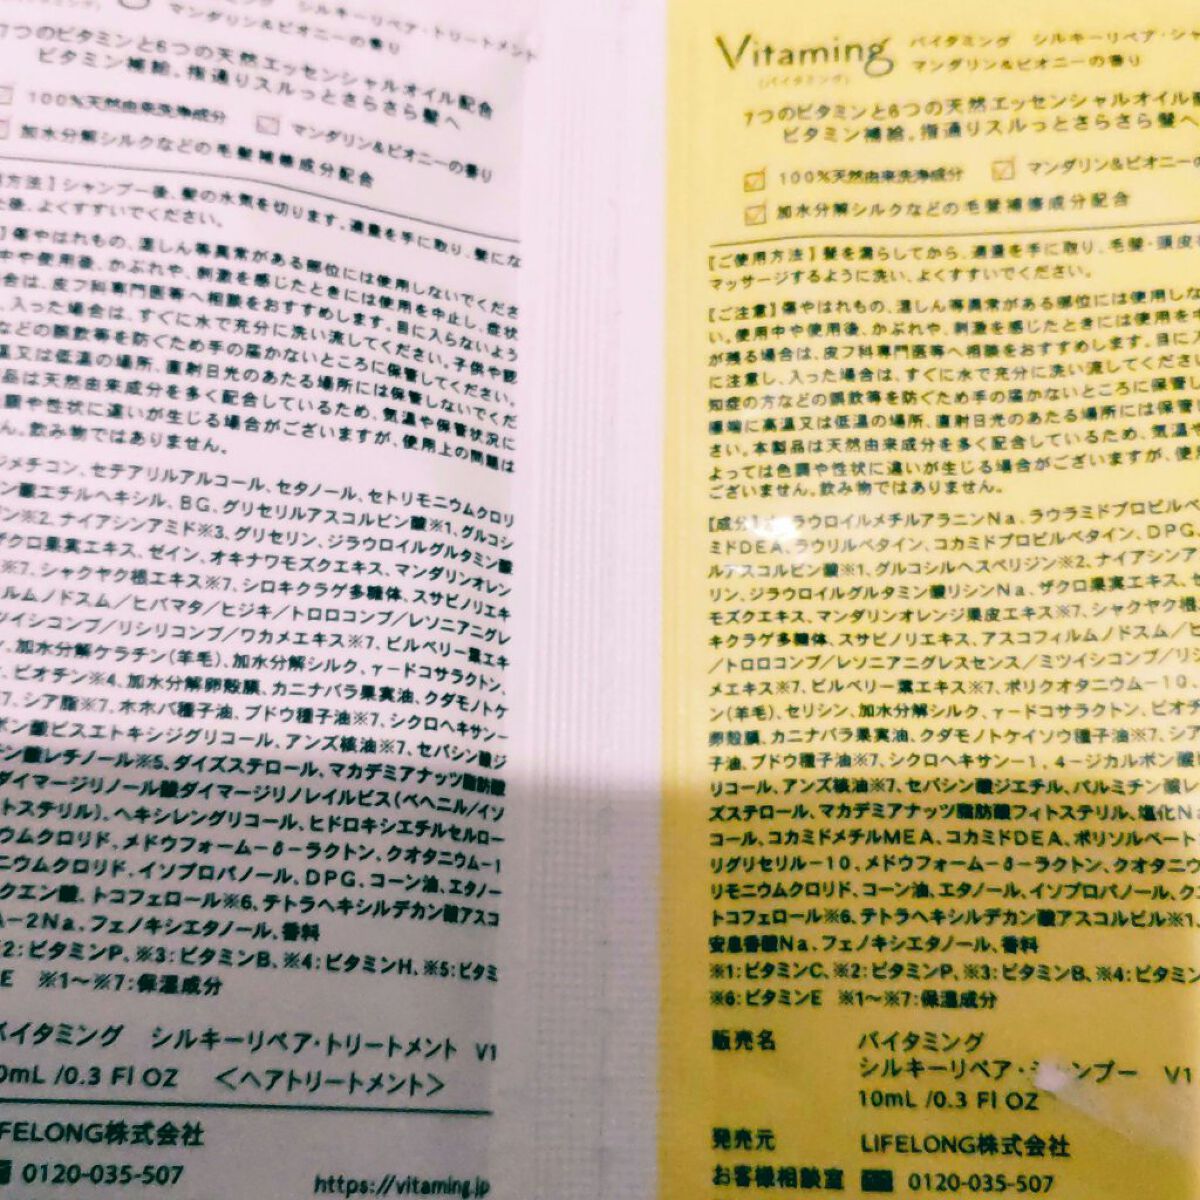 シルキーリペア・トリートメント
マンダリン&ピオニーの香り
7つのビタミンと6つの天然エッセンシャルオイル配合
ビタミン補給。指通りスルっとさらさら髪へ
100%天然由来洗浄成分 マンダリン&ピオニーの香り
加水分解シルクなどの毛髪補修成分配合
方法】シャンプー後、髪の水気を切ります。適量を手に取り、髪にな
後、よくすすいでください。
】傷やはれもの、湿しん等異常がある部位には使用しないでくださ
中や使用後、かぶれや、刺激を感じたときには使用を中止し、症状
合は、皮フ科専門医等へ相談をおすすめします。目に入らないよう
、入った場合は、すぐに水で充分に洗い流してください。子供や認
などの誤飲等を防ぐため手の届かないところに保管してください。
温又は低温の場所、直射日光のあたる場所には保管しないでくだ
品は天然由来成分を多く配合しているため、気温や保管状況に
調や性状に違いが生じる場合がございますが、使用上の問題は
ん。飲み物ではありません。
ジメチコン、セテアリルアルコール、セタノール、セトリモニウムクロリ
ン酸エチルヘキシル、BG、グリセリルアスコルビン酸※1、グルコシ
ン※2、ナイアシンアミド※3、グリセリン、ジラウロイルグルタミン酸
ザクロ果実エキス、ゼイン、オキナワモズクエキス、マンダリンオレン
※7、シャクヤク根エキス※7、シロキクラゲ多糖体、スサビノリエキ
ルムノドスム/ヒバマタ/ヒジキ/トロロコンブ/レソニアニグレ
ツイシコンブ/リシリコンブ/ワカメエキス※7、ビルベリー葉エキ
、加水分解ケラチン(羊毛)、加水分解シルク、γードコサラクトン、
、ビオチン※4、加水分解卵殻膜、カニナバラ果実油、クダモノトケ
7、シア脂※7、ホホバ種子油、ブドウ種子油※7、シクロヘキサン−
ボン酸ビスエトキシジグリコール、アンズ核油※7、セバシン酸ジ
チン酸レチノール※5、ダイズステロール、マカデミアナッツ脂肪酸
ダイマージリノール酸ダイマージリノレイルビス(ベヘニル/イソ
トステリル)、ヘキシレングリコール、ヒドロキシエチルセルロー
ウムクロリド、メドウフォーム−δ−ラクトン、クオタニウム−1
ニウムクロリド、イソプロパノール、DPG、コーン油、エタノー
クエン酸、トコフェロール※6、テトラヘキシルデカン酸アスコ
A−2Na、フェノキシエタノール、香料
※2:ビタミンP、※3:ビタミンB、※4:ビタミンH、※5:ビタミ
E ※1〜※7:保湿成分
バイタミング シルキーリペア・トリートメント V1
0mL /0.3 Fl OZ <ヘアトリートメント>
IFELONG株式会社
0120-035-507 https://vitaming.jp
Vitaming バイタミング シルキーリペア・シャ
(バイタミング) マンダリン&ピオニーの香り
7つのビタミンと6つの天然エッセンシャルオイル
ビタミン補給。指通りスルっとさらさら髪へ
100%天然由来洗浄成分 マンダリン&ピオニーの
加水分解シルクなどの毛髪補修成分配合
【ご使用方法】髪を濡らしてから、適量を手に取り、毛髪・頭皮を
マッサージするように洗い、よくすすいでください。
【ご注意】傷やはれもの、湿しん等異常がある部位には使用しな
い。使用中や使用後、かぶれや、刺激を感じたときには使用を中
が残る場合は、皮フ科専門医等へ相談をおすすめします。目に入
に注意し、入った場合は、すぐに水で充分に洗い流してください。
知症の方などの誤飲等を防ぐため手の届かないところに保管し
極端に高温又は低温の場所、直射日光のあたる場所には保管
さい。本製品は天然由来成分を多く配合しているため、気温や
よっては色調や性状に違いが生じる場合がございますが、使
ございません。飲み物ではありません。
【成分】 ラウロイルメチルアラニンNa、ラウラミドプロピルベ
ミドDEA、ラウリルベタイン、コカミドプロピルベタイン、DPG、
ルアスコルビン酸※1、グルコシルヘスペリジン※2、ナイアシンア
リン、ジラウロイルグルタミン酸リシンNa、ザクロ果実エキス、
モズクエキス、マンダリンオレンジ果皮エキス※7、シャクヤク根
キクラゲ多糖体、スサビノリエキス、アスコフィルムノドスム/ヒ
/トロロコンブ/レソニアニグレスセンス/ミツイシコンブ/リシ
メエキス※7、ビルベリー葉エキス※7、ポリクオタニウム−10、
ン(羊毛)、セリシン、加水分解シルク、γードコサラクトン、ビオチ
卵殻膜、カニナバラ果実油、クダモノトケイソウ種子油※7、シア
子油、ブドウ種子油※7、シクロヘキサン−1、4−ジカルボン酸
リコール、アンズ核油※7、セバシン酸ジエチル、パルミチン酸レ
ズステロール、マカデミアナッツ脂肪酸フィトステリル、塩化N
コール、コカミドメチルMEA、コカミドDEA、ポリソルベート
リグリセリル−10、メドウフォーム−δ−ラクトン、クオタニウ
リモニウムクロリド、コーン油、エタノール、イソプロパノール、ク
トコフェロール※6、テトラヘキシルデカン酸アスコルビル※1、
安息香酸Na、フェノキシエタノール、香料
※1:ビタミンC、※2:ビタミンP、※3:ビタミンB、※4:ビタミン
※6:ビタミンE ※1〜※7:保湿成分
販売名 バイタミング
シルキーリペア・シャンプー V1
10mL /0.3 Fl OZ
発売元 LIFELONG株式会社
お客様相談室 0120-035-507